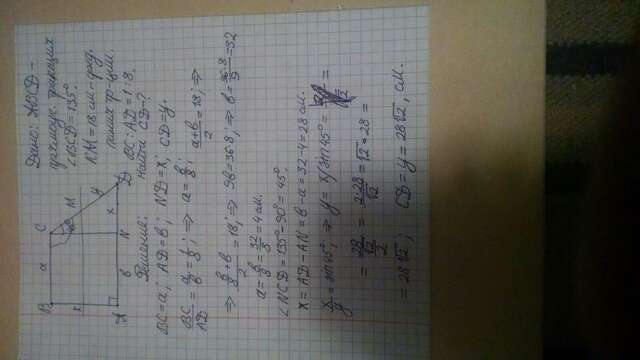 Дано: ABCD –
прямоуг. трапеция
∠BCD = 135°
KM = 18 см – сред.
линия тр-ции.
BC : AD = 1 : 8.
Найти CD – ?
B a C
K M y
x
A b N D
Решение:
BC = a; AD = b; ND = x; CD = y.
BC/AD = a/b = 1/8; ⇒ a = b/8; (a+b)/2 = 18; ⇒
⇒ (b/8 + b)/2 = 18; ⇒ 9b = 36·8; ⇒ b = 36·8/9 = 32
a = b/8 = 32/8 = 4 см.
∠NCD = 135° – 90° = 45°.
x = AD – AN = b – a = 32 – 4 = 28 см.
x/y = sin 45°; ⇒ y = x/sin 45° =
= 28/(√2/2) = 2·28/√2 = √2·28 =
= 28√2; CD = y = 28√2, см.